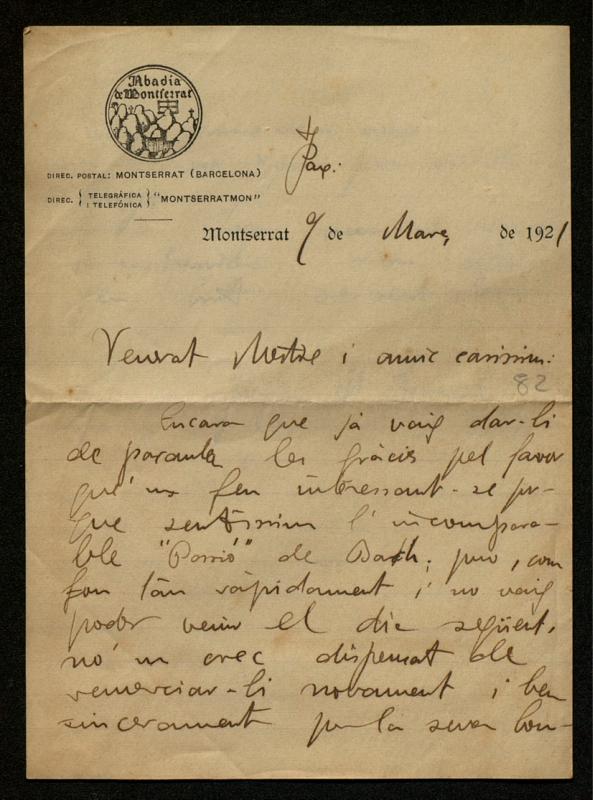 Abadia
de Montserrat
DIREC. POSTAL: MONTSERRAT (BARCELONA)
DIREC. { TELEGRÁFICA I TELEFÓNICA } "MONTSERRATMON"
Pax:
Montserrat 9 de Març de 1921
Venerat Mestre i amic caríssim:
82
Encara que ja vaig dar-li
de paraula les gràcies pel favor
que'ns feu interessant-se per-
que sentíssim l'incompara-
ble "Passió" de Bach; però, com
fou tan ràpidament i no vaig
poder venir el dia següent,
no'm crec dispensat de
remerciar-li novament i ben
sincerament per la seva bon-